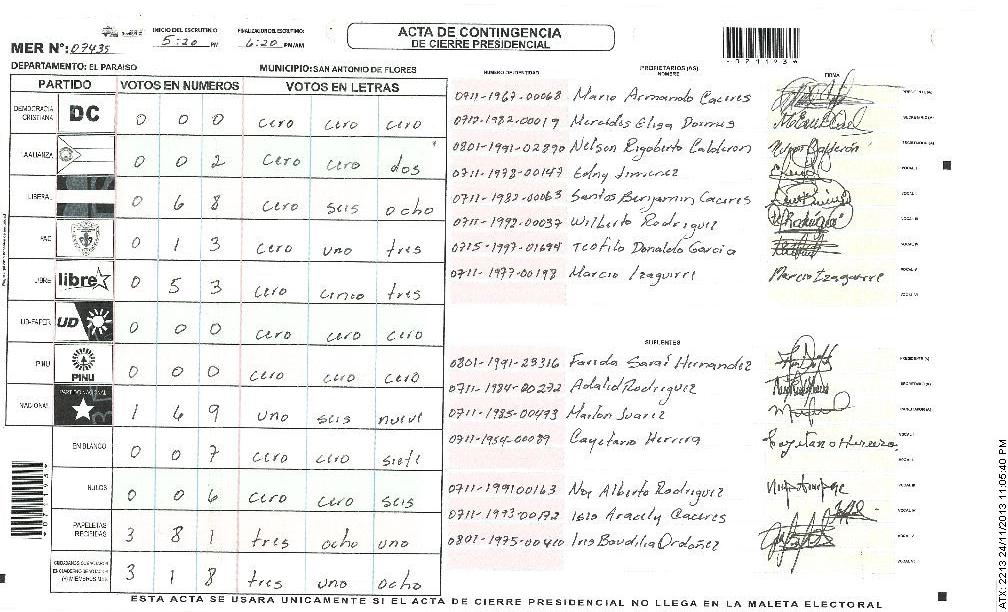 INICIO DEL ESCRUTINIO: FINALIZACION DEL ESCRUTINIO:
ACTA DE CONTINGENCIA
DE CIERRE PRESIDENCIAL
MER N°: 07435 5:20 PM 6:20 PM/AM
DEPARTAMENTO: EL PARAISO MUNICIPIO: SAN ANTONIO DE FLORES
PARTIDO VOTOS EN NUMEROS VOTOS EN LETRAS
DEMOCRACIA CRISTIANA DC 0 0 0 cero cero cero
ALIANZA 0 0 2 cero cero dos
LIBERAL 0 6 8 cero seis ocho
PAC 0 1 3 cero uno tres
LIBRE libre 0 5 3 cero cinco tres
UD-FAPER UD 0 0 0 cero cero cero
PINU PINU 0 0 0 cero cero cero
NACIONAL PARTIDO NACIONAL 1 6 9 uno seis nueve
EN BLANCO 0 0 7 cero cero siete
NULOS 0 0 6 cero cero seis
PAPELETAS RECIBIDAS 3 8 1 tres ocho uno
3 1 8 tres uno ocho
NUMERO DE IDENTIDAD PROPIETARIOS (AS) NOMBRE FIRMA
0711-1967-00068 Mario Armando Caceres
0712-1982-00019 Mercedes Elisa
0801-1991-02890 Nelson Rigoberto Calderon
0711-1978-00147 Edny Jimenez
0711-1982-00063 Santos Benjamin Caceres
0711-1992-00037 Wilberto Rodriguez
0715-1997-01694 Teofilo Donaldo Garcia
0711-1977-00198 Marcio Izaguirre Marcio Izaguirre
SUPLENTES
0801-1991-23316 Farida Sarai Hernandez
0711-1984-00272 Adalid Rodriguez
0711-1985-00473 Marlon Suarez
0711-1954-00089 Cayetano Herrera Cayetano Herrera
0711-199100163 Noe Alberto Rodriguez
0711-1993-00172 Isis Aracely Caceres
0801-1975-00410 Iris Baudilia Ordoñez
ESTA ACTA SE USARA UNICAMENTE SI EL ACTA DE CIERRE PRESIDENCIAL NO LLEGA EN LA MALETA ELECTORAL
ATX: 2213 24/11/2013 11:05:40 PM